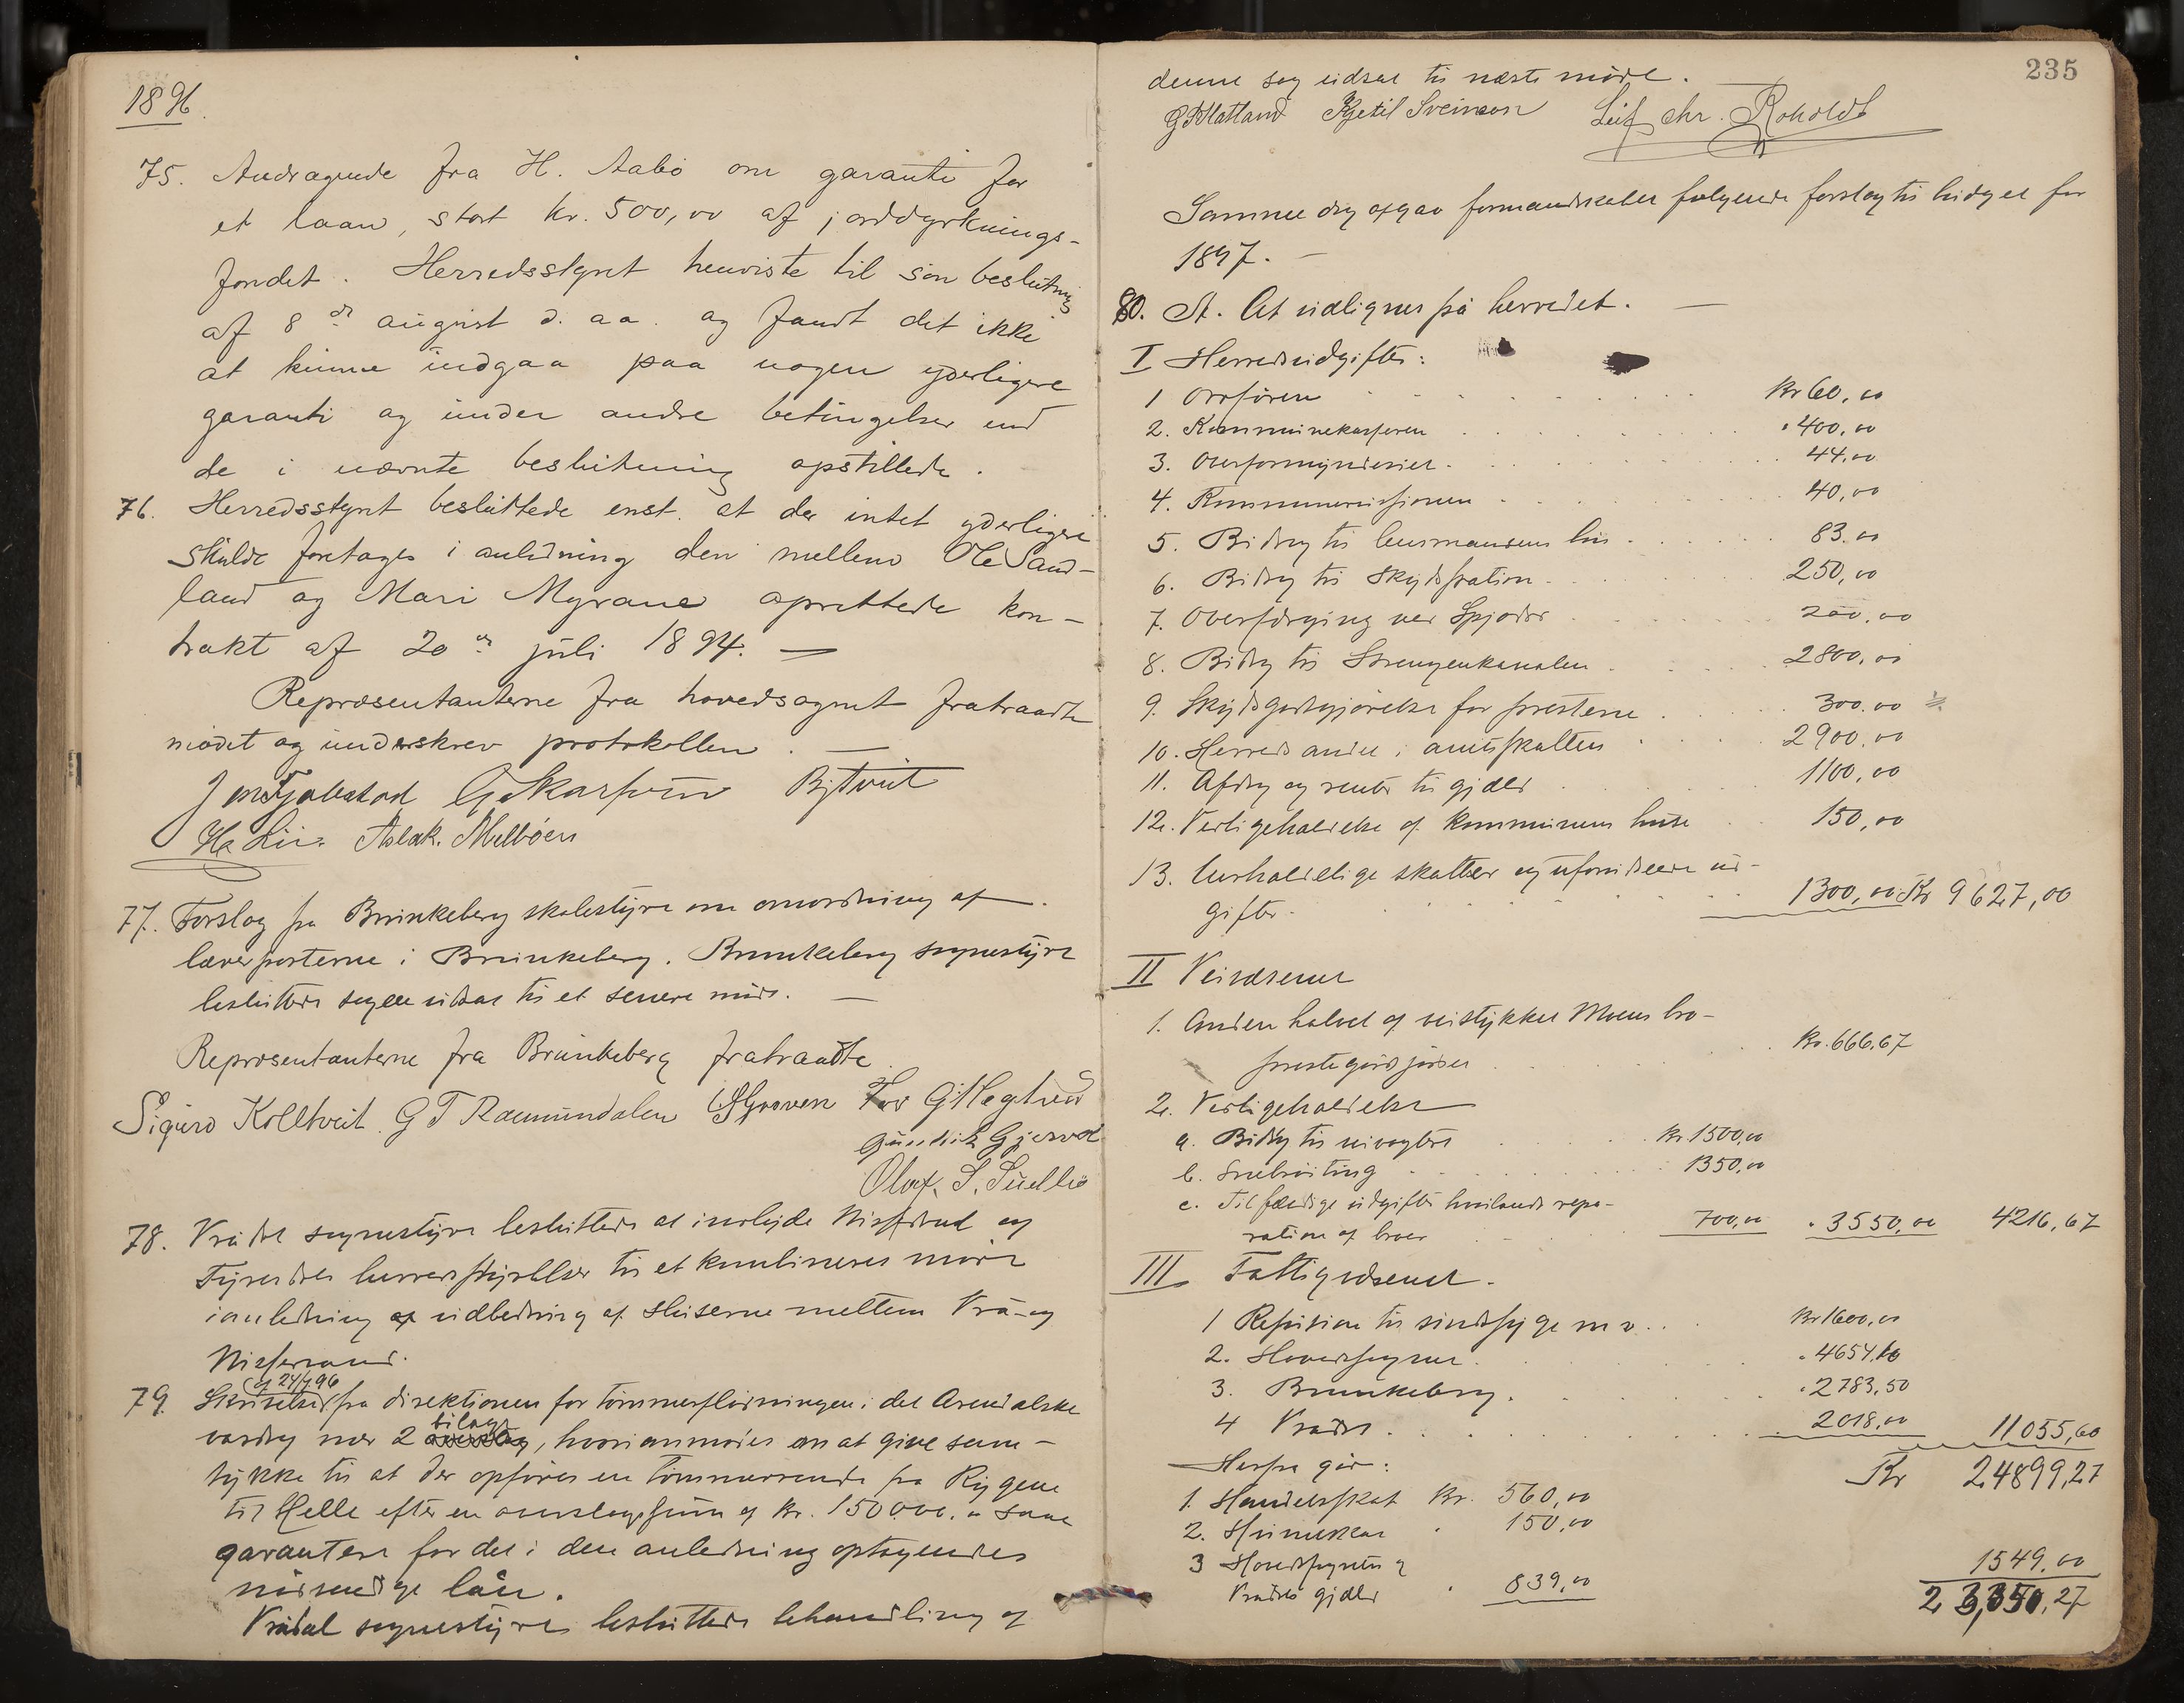 1896.
75. Andragende fra H. Aabö om garanti for
et laan, stort kr. 500,00 af jorddyrknings-
fondet. Herredsstyret henviste til sin beslutning
af 8de august d. aa. og fandt det ikke
at kunne indgaa paa nogen yderligere
garanti og under andre betingelser end
de i nævnte beslutning opstillede.
76. Herredsstyret besluttede enst. at der intet yderligere
skulde foretages i anledning den mellem Ole Sand-
land og Mari Myrane oprettede kon-
trakt af 20de juli 1894. —
Repræsentanterne fra hovedsognet fratraadte
mödet og underskrev protokollen. —
Aslak. Melböen
77. Forslag fra Brunkeberg skolestyre om omordning af
lærerposterne i Brunkeberg. Brunkeberg sognestyre
besluttede sagen udsat til et senere möde. —
Repræsentanterne fra Brunkeberg fratraadte.
Sigurd Kolltveit. G T Raamundalen
Olaf. S.
78. Vrådal sognestyre besluttede at indbyde Nissedal og
Tyrdals herredsstyrelser til et kombineret möde
i anledning af udbedring af sluserne mellem Vrå- og
Nisservand.
af 24/7 96
79. Skrivelse fra direktionen for tömmerflödningen i det Arendalske
vasdrag med 2 bilag, hvori anmodes om at give sam-
tykke til at der opföres en tömmerrende fra Rygene
til Helle efter en overslagssum af kr. 150000. samt
garantere for det i den anledning optagendes
nödvendige lån.
Vrådal sognestyre besluttede behandling af
235
denne sag udsat til næste möde.
Kjetil Sveinson Leif Chr. Roholdt
Samme dag afgav formandskabet følgende forslag til budget for
1897. —
80. A. At udlignes på herredet. —
I Herredsudgifter:
1 Ordföreren Kr 60,00
2. Kommunekassereren " 400,00
3. Overformynderiet. 44,00
4. 40,00
5. Bidrag til lensmandens hus. 83.00
6. Bidrag til Skydsstation. 250,00
7. Oversørging ved Spjodsr 200,00
8. Bidrag til Strengenkanalen. 2800,00
9. Skydsgodtgjörelse for presterne. 300.00
10. Herredsandel i amtsskatten 2900.00
11. Afdrag og renter til gjæld 1100,00
12. Vedligeholdelse af kommunens huse 150,00
13. Uerholdelige skatter og uforudseede ud-
gifter. 1300,00 Kr 9627,00
II Veivæsenet
1. Anden halvdel af veistykket Moens bro-
prestegårdsjordet Kr. 666,67
2. Vedligeholdelse
a. Bidrag til veivogtere Kr. 1500,00
b. Snebröiting 1350,00
c. Tilfældige udgifter herilands repa-
ration af broer 700,00 " 3550,00 4216,67
III. Fattigvæsenet.
1 Refusion til sindssyge m v. Kr 1600,00
2. Hovedsognet. " 4654,10
3. Brunkeberg. " 2783,50
4 Vrådal. 2018,00 11055,60
Herfra går: Kr 24899,27
1. Handelsskat Kr. 560,00
2. Hundeskat " 150,00
3 Hovedsognets og
Vrådals gjæld " 839,00 1549.00
23,350,27